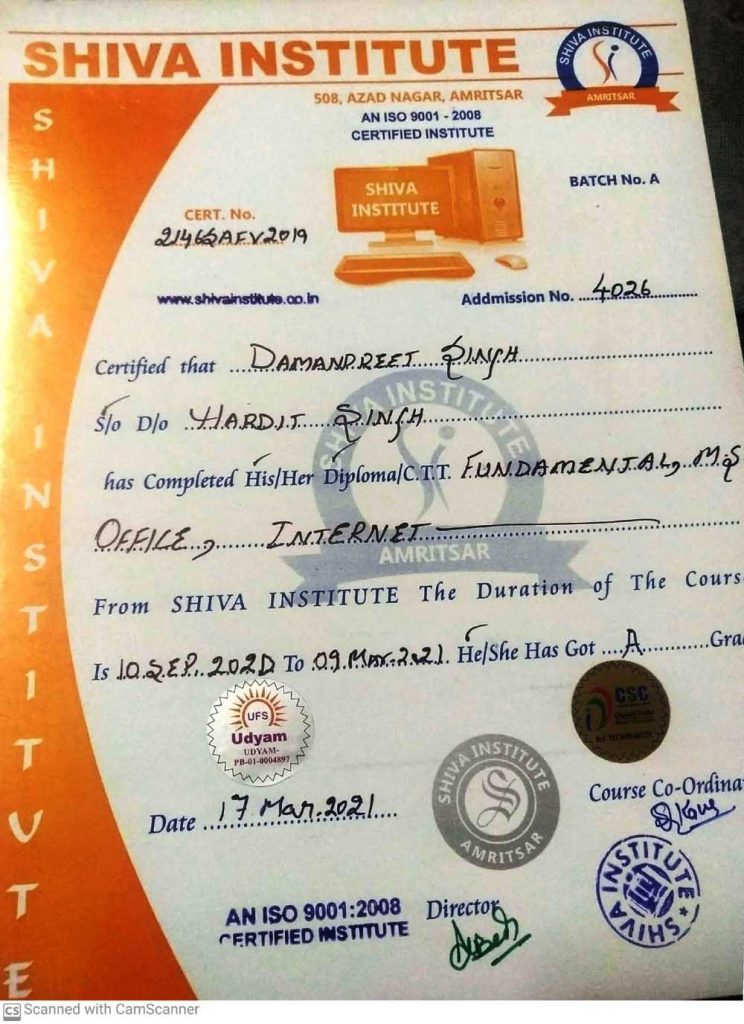 SHIVA INSTITUTE
SHIVA INSTITUTE
AMRITSAR
508, AZAD NAGAR, AMRITSAR
AN ISO 9001 - 2008
CERTIFIED INSTITUTE
SHIVA INSTITUTE
SHIVA
INSTITUTE
BATCH No. A
CERT. No.
www.shivainstitute.co.in
Addmission No. ....4026..........
Certified that ...DAMANPREET SINGH..........
S/o D/o ..HARDIT SINGH..........
has Completed His/Her Diploma/C.T.T. FUNDAMENTAL, M.S
OFFICE, ........ INTERNET
SHIVA INSTITUTE
AMRITSAR
From SHIVA INSTITUTE The Duration of The Cours
Is 10.SEP. 2020 To 09.Mar.2021. He/She Has Got ....A..........Gra
UFS
Udyam
UDYAM-
PB-01-0004897
CSC
SHIVA INSTITUTE
S
AMRITSAR
Course Co-Ordina
Date ..17 Mar.2021....
SHIVA INSTITUTE
AN ISO 9001:2008
CERTIFIED INSTITUTE
Director
CS Scanned with CamScanner